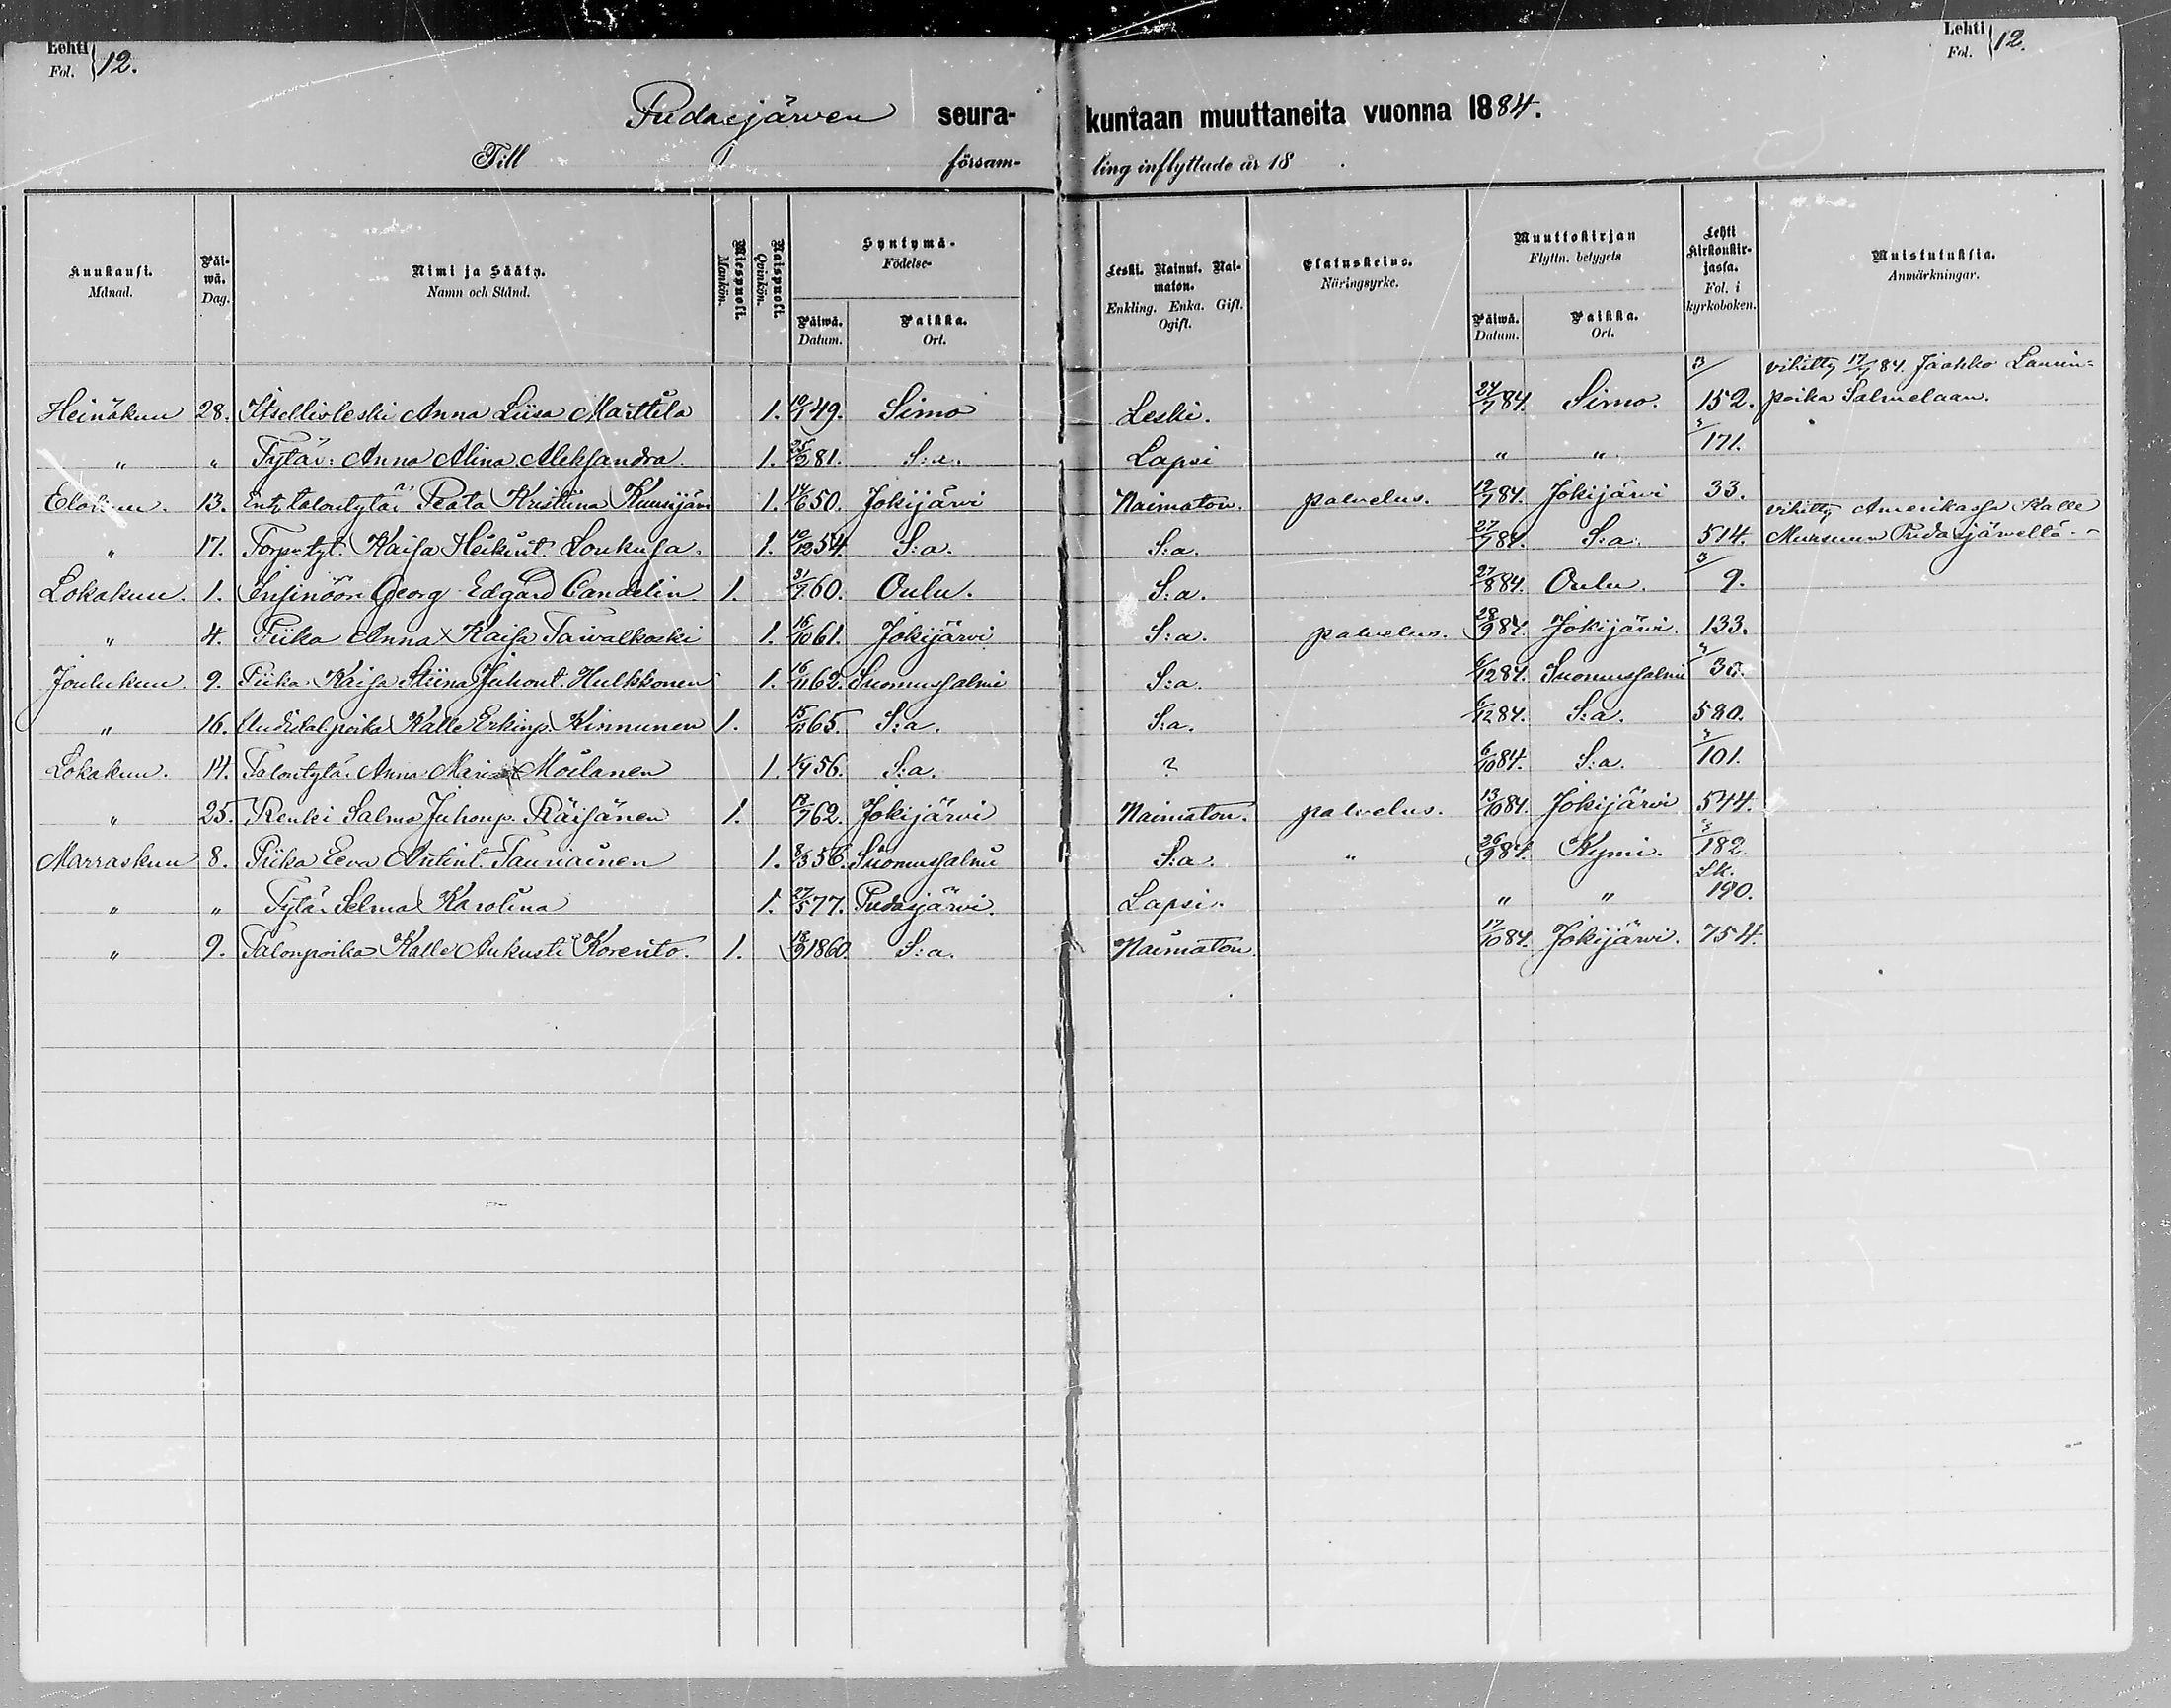 Lehti Fol. 12.
Lehti Fol. 12.
Pudasjärven seurakuntaan muuttaneita vuonna 1884.
Till församling inflyttade år 18 .
Kuukausi. Månad. | Päiwä. Dag. | Nimi ja Sääty. Namn och Stånd. | Miespuoli. Mankön. | Naispuoli. Qvinkön. | Syntymä- Födelse- Päiwä. Datum. | Paikka. Ort. | Leski. Nainut. Naimaton. Enkling. Enka. Gift. Ogift. | Elatuskeino. Näringsyrke. | Muuttokirjan Flyttn. betygets Päiwä. Datum. | Paikka. Ort. | Lehti Kirkonkirjassa. Fol. i kyrkoboken. | Muistutuksia. Anmärkningar.
Heinäkuu 28. Itsellisleski Anna Liisa Marttila 1. 10/1 49. Simo Leski. 24/7 84. Simo. 152. vihitty 17/7 84. Jaakko Laurinpoika Salmelaan.
" " Tytär: Anna Alina Aleksandra. 1. 25/2 81. S:a. Lapsi " " 171.
Elokuu. 13. Ent. talontytär Peata Kristiina Kuusijärvi 1. 14/6 50. Jokijärvi Naimaton. palvelus. 12/7 84. Jokijärvi 33.
" 17. Torp. tyt. Kaisa Heikint. Loukusa. 1. 10/12 54. S:a. S:a. 27/7 84. S:a. 514. vihitty Amerikassa Kalle Mursuun Pudasjärveltä.
Lokakuu. 1. Insinööri Georg Edgard Candelin. 1. 31/7 60. Oulu. S:a. 27/8 84. Oulu. 9.
" 4. Piika Anna Kaisa Taivalkoski 1. 16/10 61. Jokijärvi S:a. palvelus. 28/9 84. Jokijärvi. 133.
Joulukuu. 9. Piika Kaisa Stiina Juhont. Hulkkonen 1. 16/11 62. Suomussalmi S:a. 6/12 84. Suomussalmi 30.
" 16. Uudistal. poika Kalle Erkinp. Kinnunen 1. 15/11 65. S:a. S:a. 6/12 84. S:a. 580.
Lokakuu. 14. Talontytär Anna Maria Moilanen 1. 56. S:a. ? 6/10 84. S:a. 101.
" 25. Renki Salmo Juhonp. Räisänen 1. 13/7 62. Jokijärvi Naimaton. palvelus. 13/10 84. Jokijärvi 544.
Marraskuu 8. Piika Eeva Antint. Tauriainen 1. 8/3 56. Suomussalmi S:a. " 26/9 84. Kymi. 182.
" " Tytär Selma Karolina 1. 27/5 77. Pudasjärvi. Lapsi. " " Sk. 190.
" 9. Talonpoika Kalle Aukusti Korento. 1. 18/9 1860. S:a. Naimaton. 17/10 84. Jokijärvi. 754.